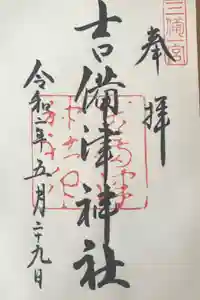 三備一宮
奉拝
吉備津神社
令和二年五月二十九日